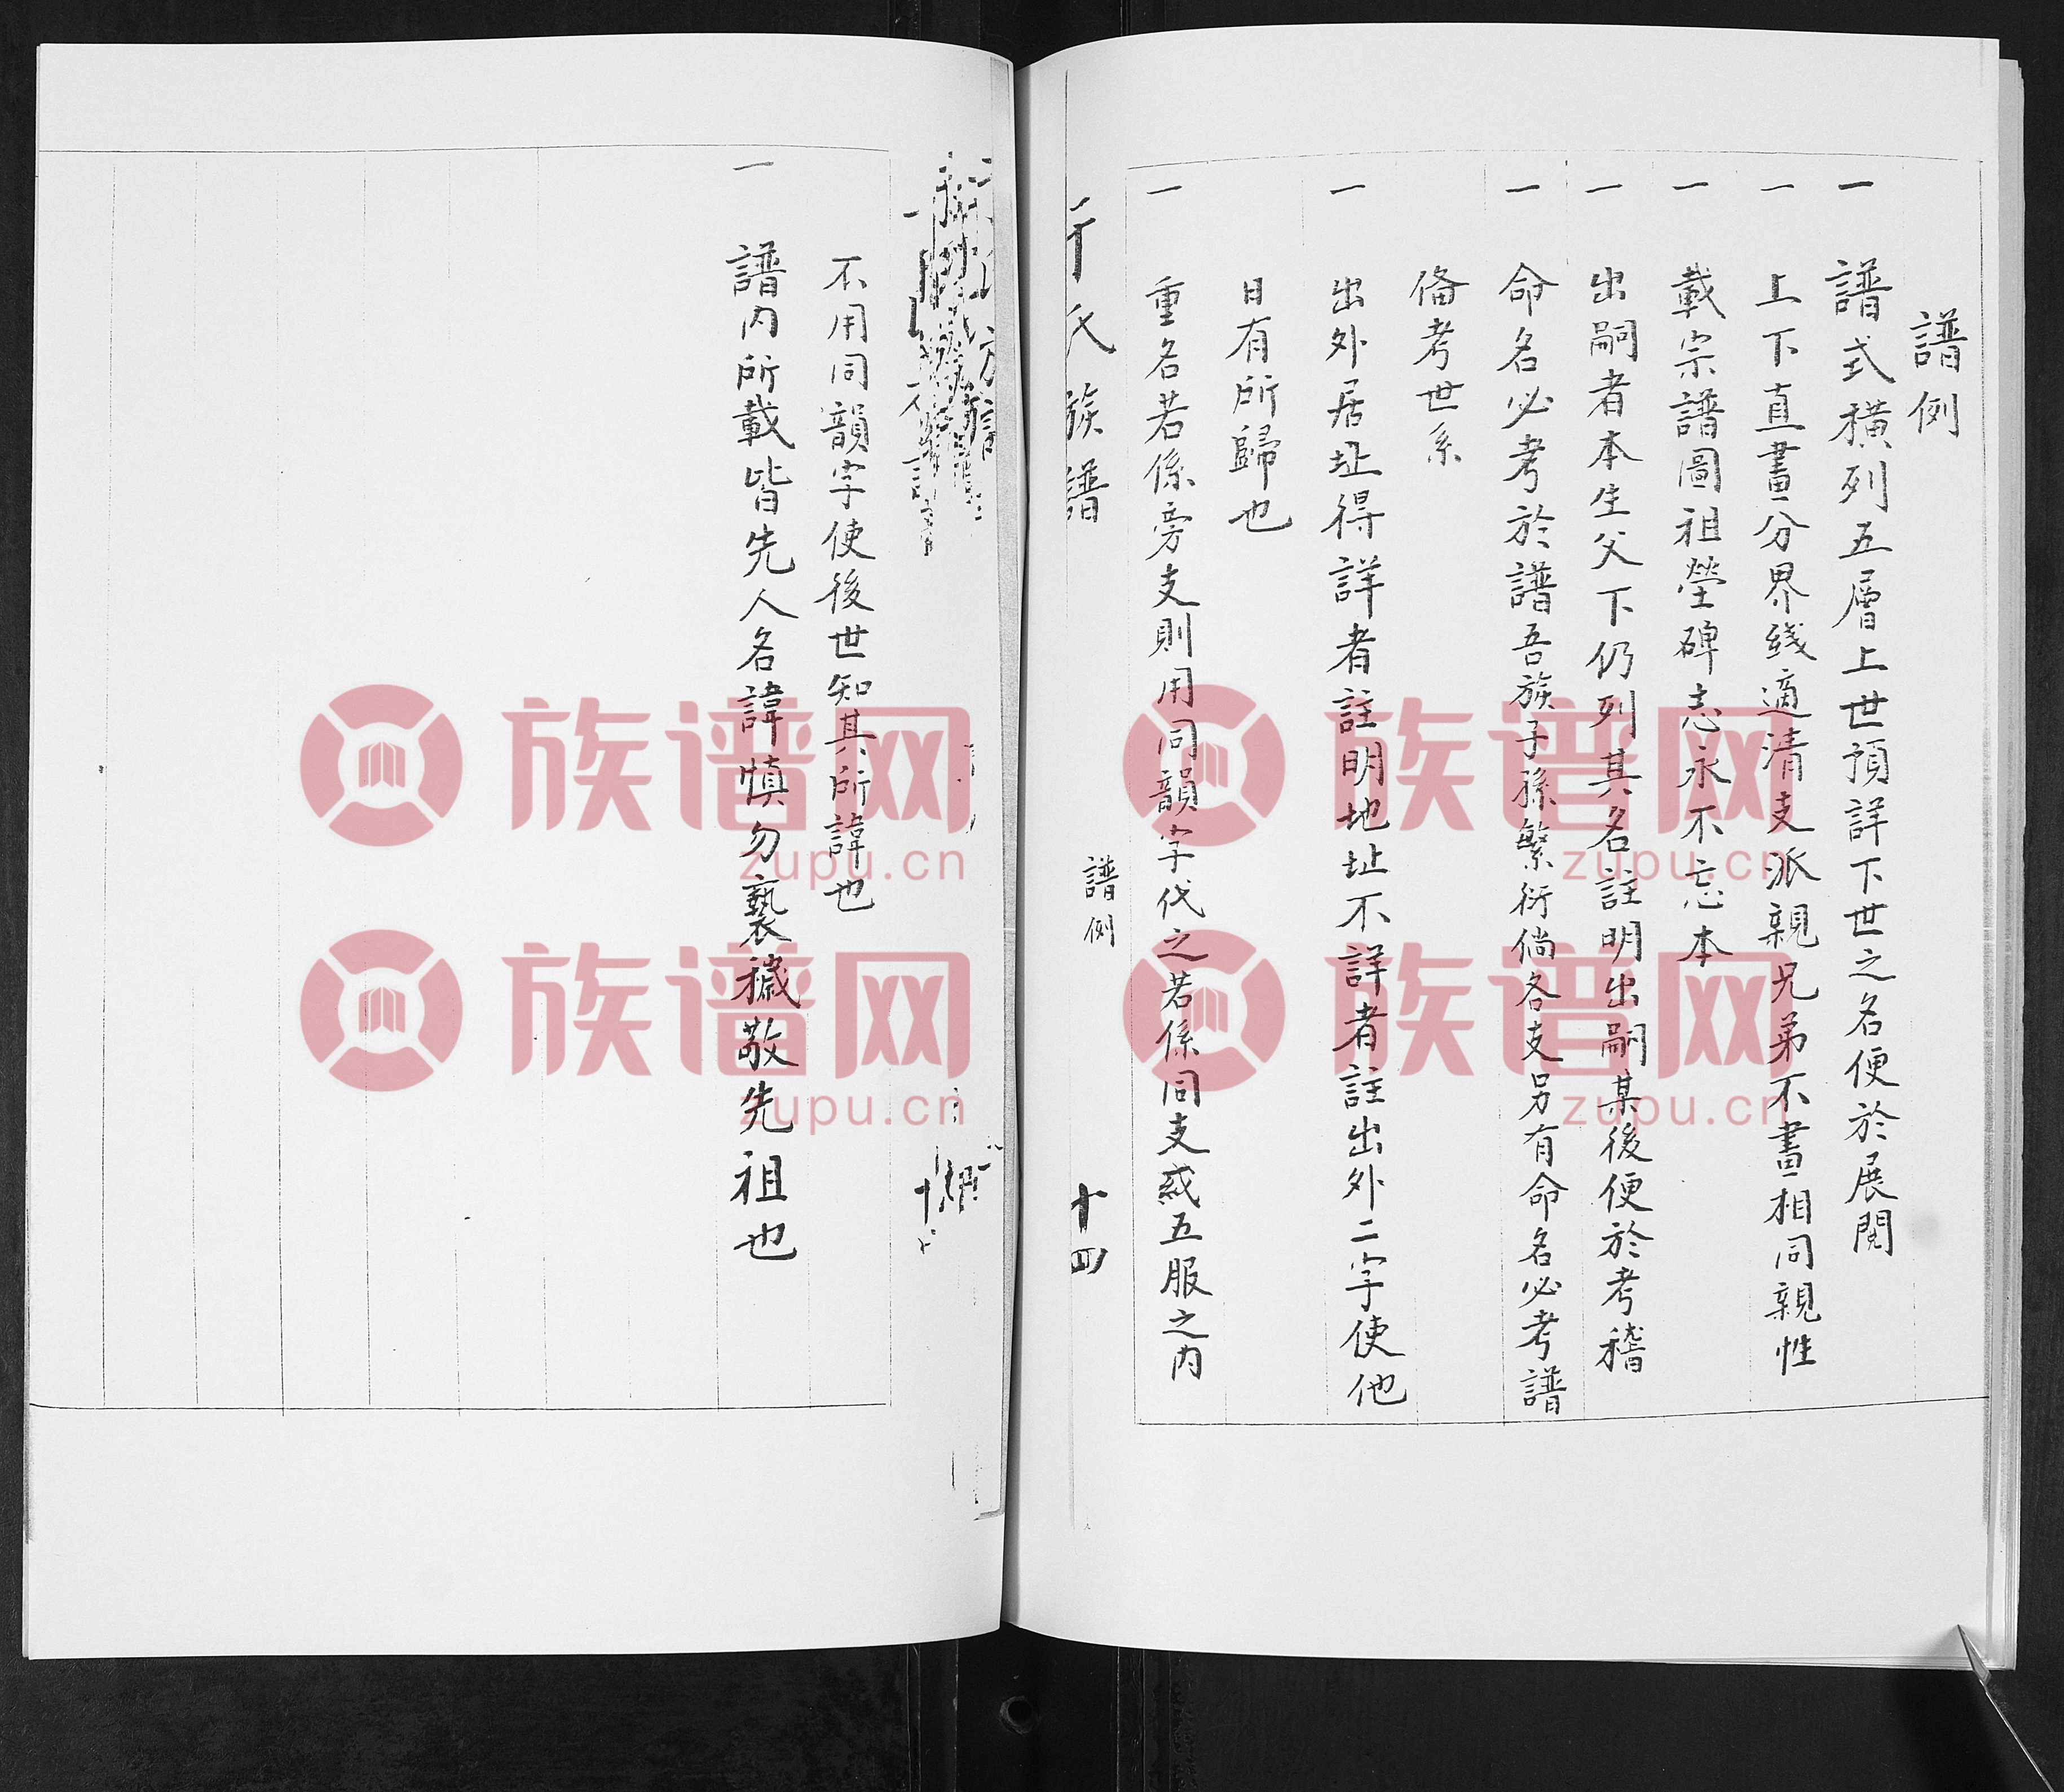 譜例
一 譜式橫列五層上世預詳下世之名便於展閱
一 上下直畫分界綫適清支派親兄弟不畫相同親性
一 載宗譜圖祖塋碑志永不忘本
一 出嗣者本生父下仍列其名註明出嗣某後便於考稽
一 命名必考於譜吾族子孫繁衍倘各支另有命名必考譜
俻考世系
一 出外居址得詳者註明地址不詳者註出外二字使他
日有所歸也
一 重名若係旁支則用同韻字代之若係同支或五服之内
氏族譜
譜例
十四
不用同韻字使後世知其所諱也
一 譜内所載皆先人名諱慎勿褻穢敬先祖也
族谱网
zupu.cn
族谱网
zupu.cn
族谱网
zupu.cn
族谱网
zupu.cn